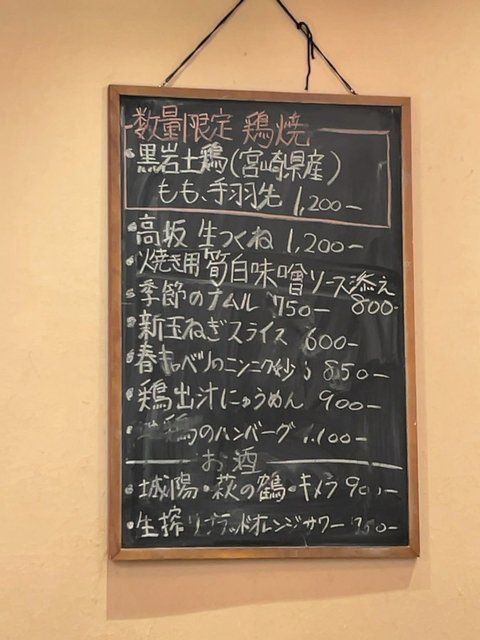 数量限定 鶏焼
・黒岩土鶏(宮崎県産)
もも、手羽先 1,200-
・高坂 生つくね 1,200-
・焼き用筍白味噌ソース添え
800-
・季節のナムル 750-
・新玉ねぎスライス 600-
・春キャベツのニンニク炒め 850-
・鶏出汁にゅうめん 900-
鶏のハンバーグ 1,100-
お酒
・城陽・萩の鶴・キメラ 900-
・生搾りブラッドオレンジサワー 750-